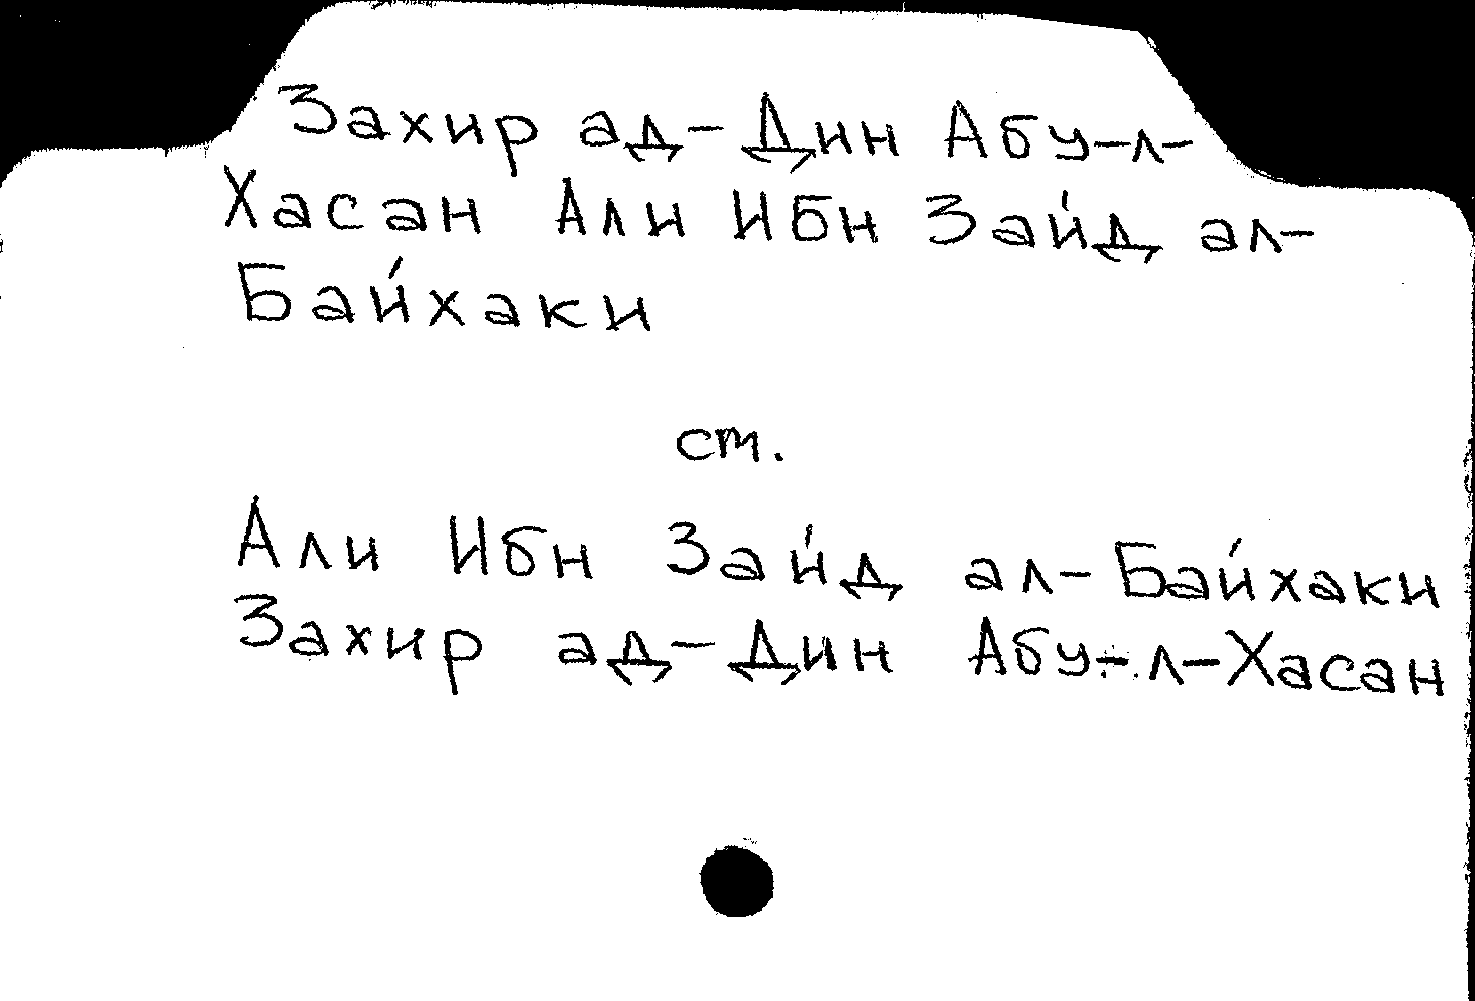 Захир ад-Дин Абу-л-
Хасан Али Ибн Зайд ал-
Байхаки
ст.
Али Ибн Зайд ал-Байхаки
Захир ад-Дин Абу-л-Хасан